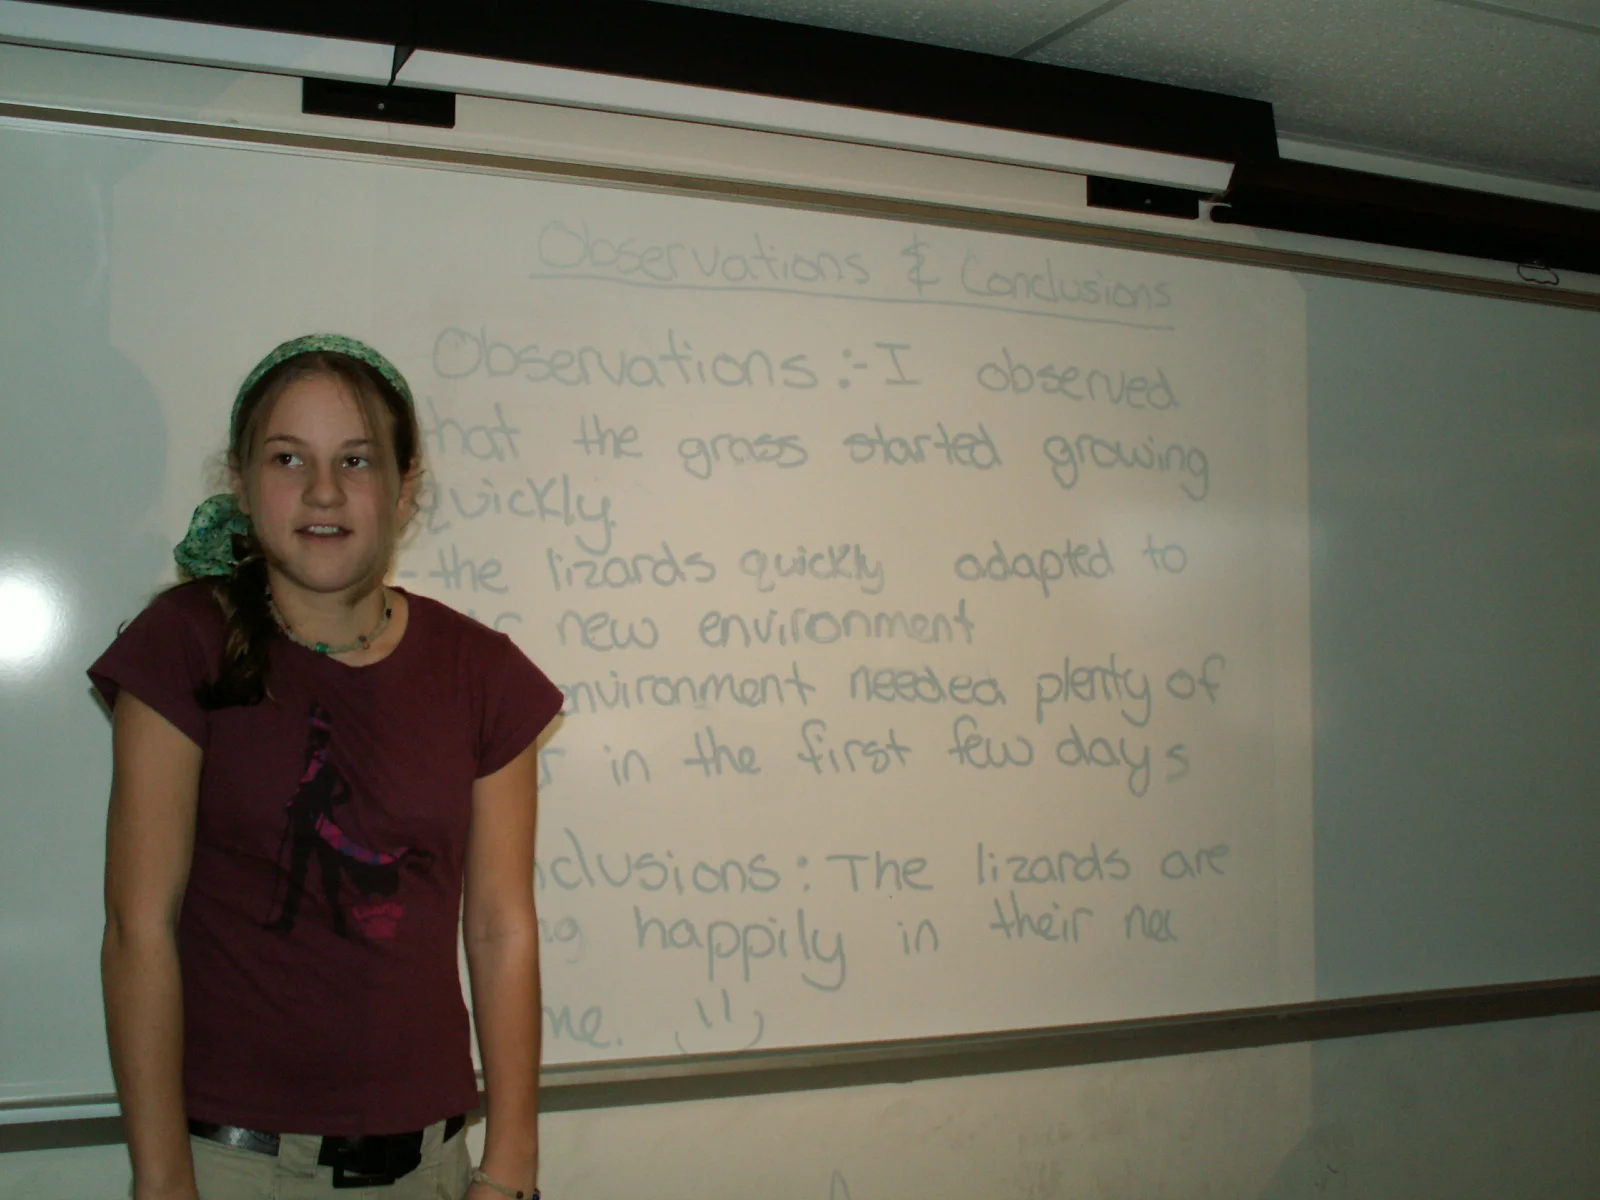 Observations & Conclusions
Observations :- I observed
that the grass started growing
quickly.
-the lizards quickly adapted to
new environment
environment needed plenty of
in the first few days
nclusions : The lizards are
happily in their ne
me.